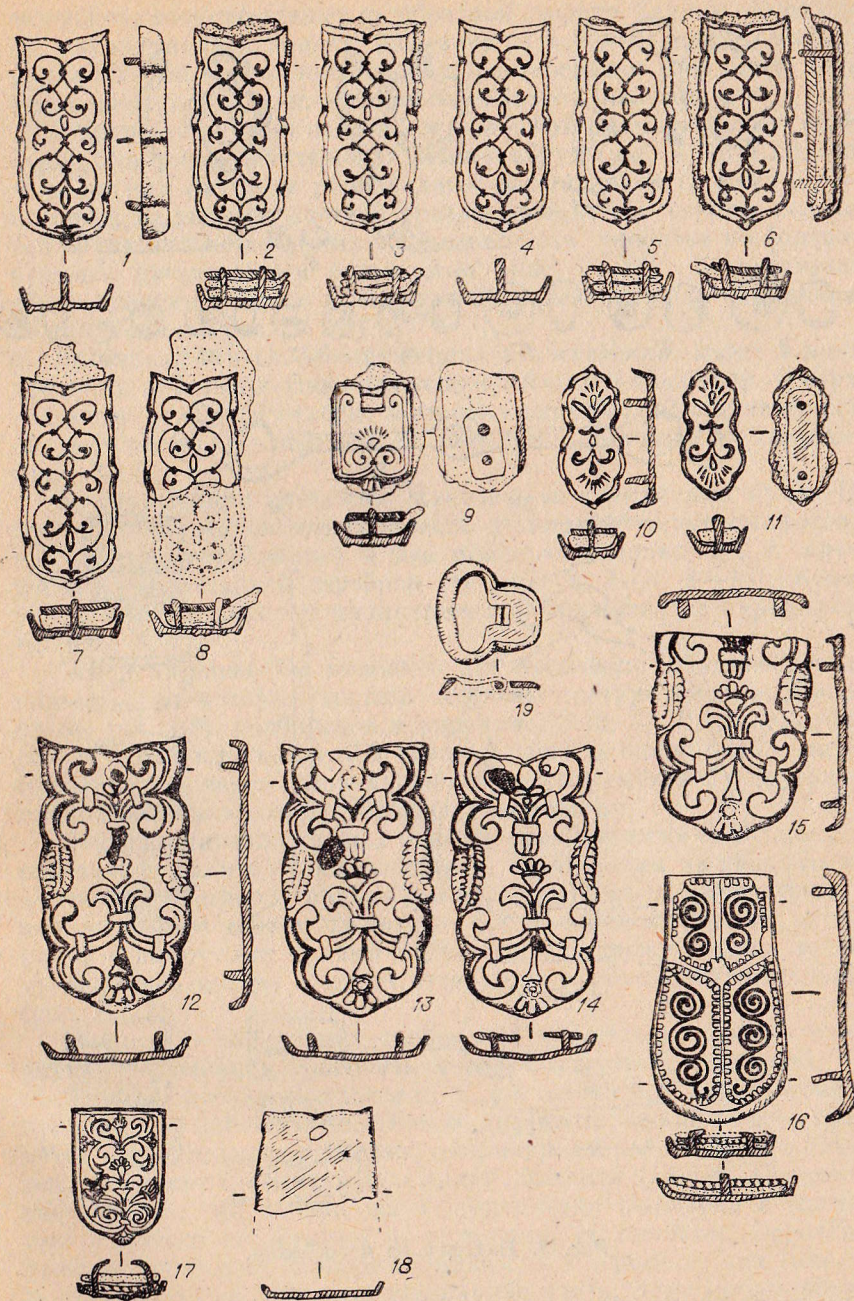 1 2 3 4 5 6
7 8 9 10 11
19
15
12 13 14
16
17 18